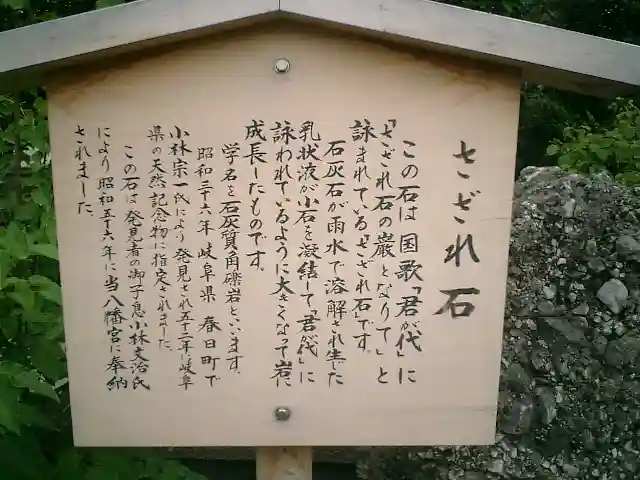 さざれ石
この石は国歌「君が代」に
「さざれ石の巌となりて」と
詠まれている「さざれ石」です。
石灰石が雨水で溶解され生じた
乳状液が小石を凝結して「君が代」に
詠われているように大きくなって岩に
成長したものです。
学名を石灰質角礫岩といいます。
昭和三十六年岐阜県春日町で
小林宗一氏により発見され五十二年、岐阜
県の天然記念物に指定されました。
この石は発見者の御子息小林文治氏
により昭和五十六年に当八幡宮に奉納
されました。